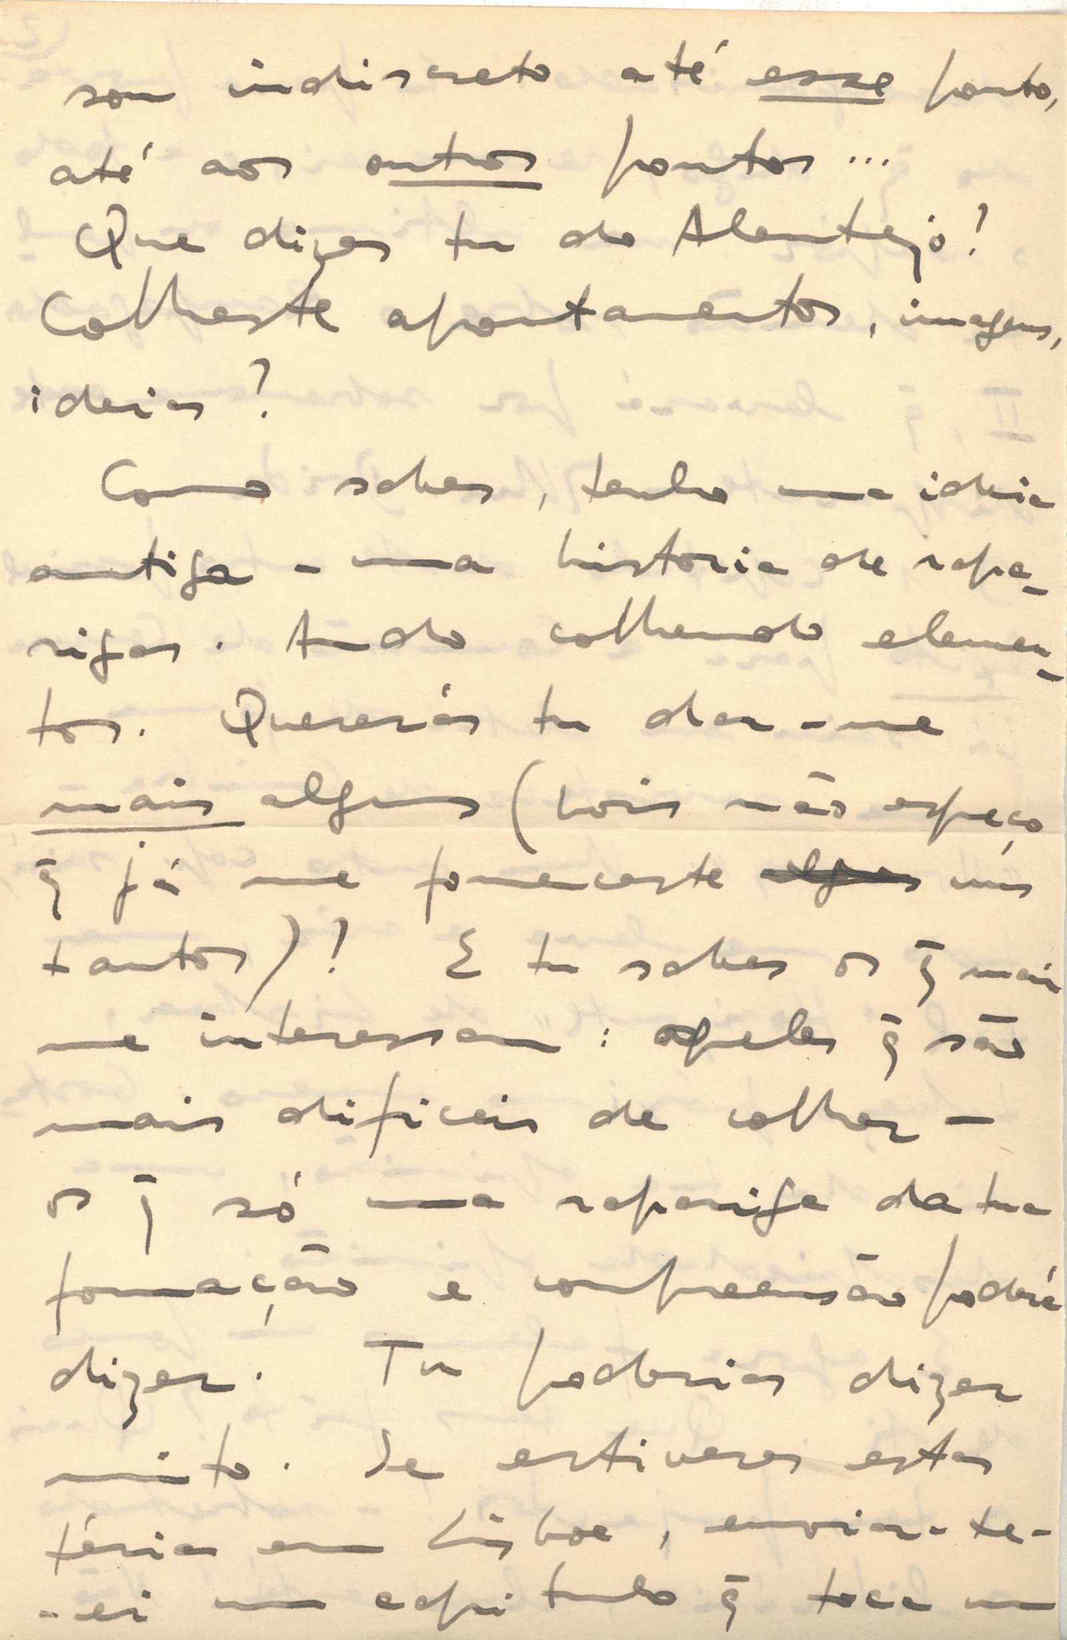 sou indiscreto até esse ponto,
até aos outros pontos...
Que dizes tu do Alentejo?
Colheste apontamentos, imagens,
ideias?
Como sabes, tenho uma ideia
antiga - uma historia de rapa-
rigas. Ando colhendo elemen-
tos. Quererás tu dar-me
mais alguns (pois não esqueço
q̃ já me forneceste alguns uns
tantos)? E tu sabes os q̃ mais
me interessam: aqueles q̃ são
mais dificeis de colher -
os q̃ só uma rapariga da tua
formação e compreensão poderá
dizer. Tu poderias dizer
muito. Se estiveres estas
férias em Lisboa, enviar-te-
-ei um capitulo q̃ toca um